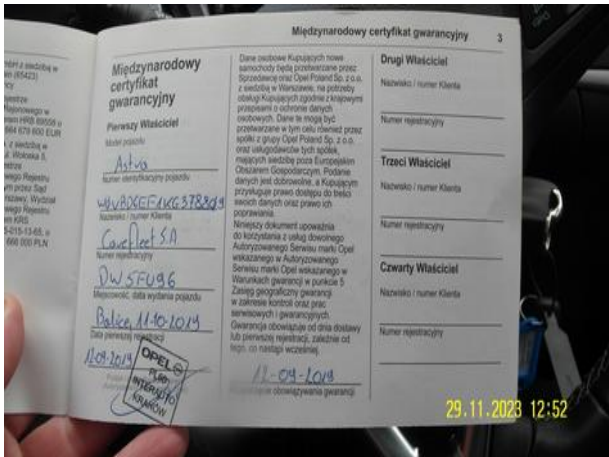 Międzynarodowy certyfikat gwarancyjny 3
Międzynarodowy
certyfikat
gwarancyjny
Pierwszy Właściciel
Model pojazdu
Astra
Numer identyfikacyjny pojazdu
Nazwisko / numer Klienta
Carefleet S.A
Numer rejestracyjny
DW5FU96
Miejscowość, data wydania pojazdu
Balice, 11-10-2019
Data pierwszej rejestracji
12-09-2019
OPEL
INTERAUTO
KRAKÓW
Dane osobowe Kupujących nowe
samochody będą przetwarzane przez
Sprzedawcę oraz Opel Poland Sp. z o.o.
z siedzibą w Warszawie, na potrzeby
obsługi Kupujących zgodnie z krajowymi
przepisami o ochronie danych
osobowych. Dane te mogą być
przetwarzane w tym celu również przez
spółki z grupy Opel Poland Sp. z o.o.
oraz usługodawców tych spółek,
mających siedzibę poza Europejskim
Obszarem Gospodarczym. Podanie
danych jest dobrowolne, a Kupującym
przysługuje prawo dostępu do treści
swoich danych oraz prawo ich
poprawiania.
Niniejszy dokument upoważnia
do korzystania z usług dowolnego
Autoryzowanego Serwisu marki Opel
wskazanego w Autoryzowanego
Serwisu marki Opel wskazanego w
Warunkach gwarancji w punkcie 5
Zasięg geograficzny gwarancji
w zakresie kontroli oraz prac
serwisowych i gwarancyjnych.
Gwarancja obowiązuje od dnia dostawy
lub pierwszej rejestracji, zależnie od
tego, co nastąpi wcześniej.
12-09-2019
obowiązywania gwarancji
Drugi Właściciel
Nazwisko / numer Klienta
Numer rejestracyjny
Trzeci Właściciel
Nazwisko / numer Klienta
Numer rejestracyjny
Czwarty Właściciel
Nazwisko / numer Klienta
Numer rejestracyjny
29.11.2023 12:52